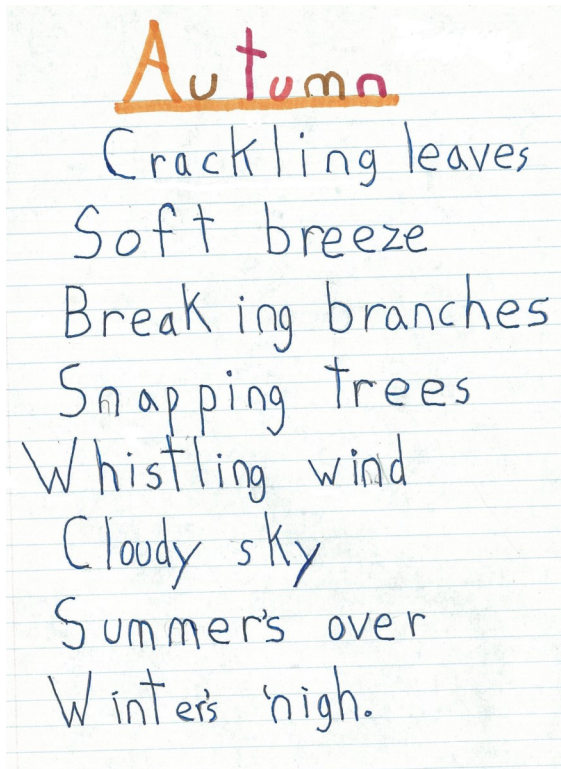 Autumn
Crackling leaves
Soft breeze
Breaking branches
Snapping trees
Whistling wind
Cloudy sky
Summer's over
Winter's 'nigh.